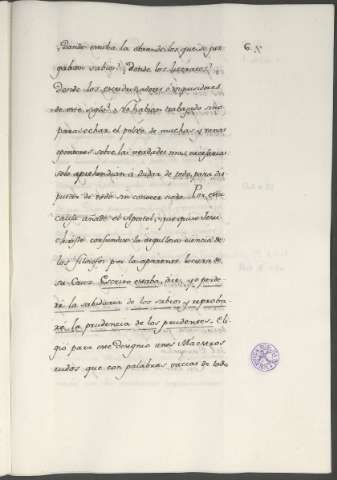 6.
¿Donde estaba la obra de los que se juz
gaban sabios? ¿Donde los Literatos?
Donde los escudriñadores é inquisidores
de este siglo? No habian trabajado sino
para echar el polvo de muchas y vanas
opiniones sobre las verdades mas
solo aprehendian á dudar de todo, para dis
putar de todo sin conocer nada. Por esta
causa añade el Apostol, que quiso Jesu
christo confundir la orgullosa ciencia de
los filosofos por la aparente locura de
su Cruz. Escrito estaba, dice, yo perde
ré la sabiduria de los sabios y reproba
ré la prudencia de los prudentes. Eli
gió para este designio unos Maestros
rudos que con palabras vacias de todo